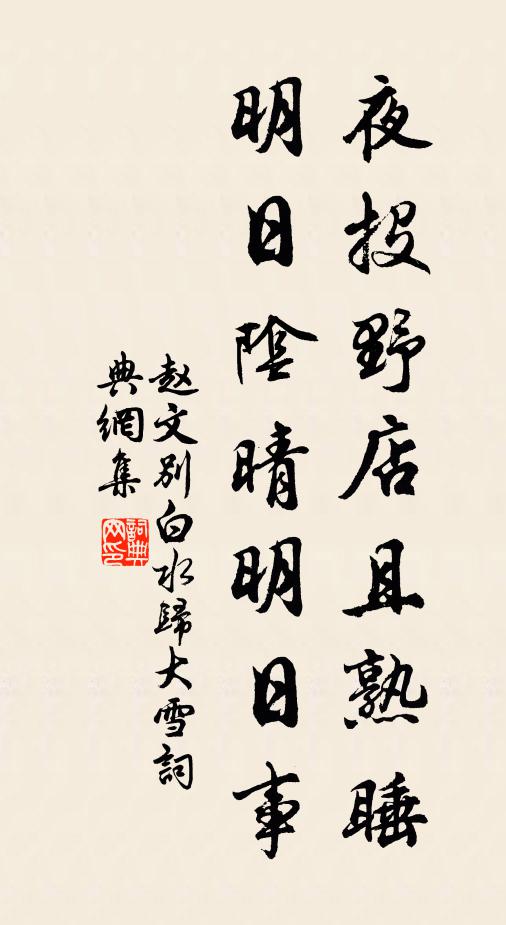 夜投野店且熟睡
明日陰晴明日事
赵文别白水歸大雪詞
典網集
詞典网印